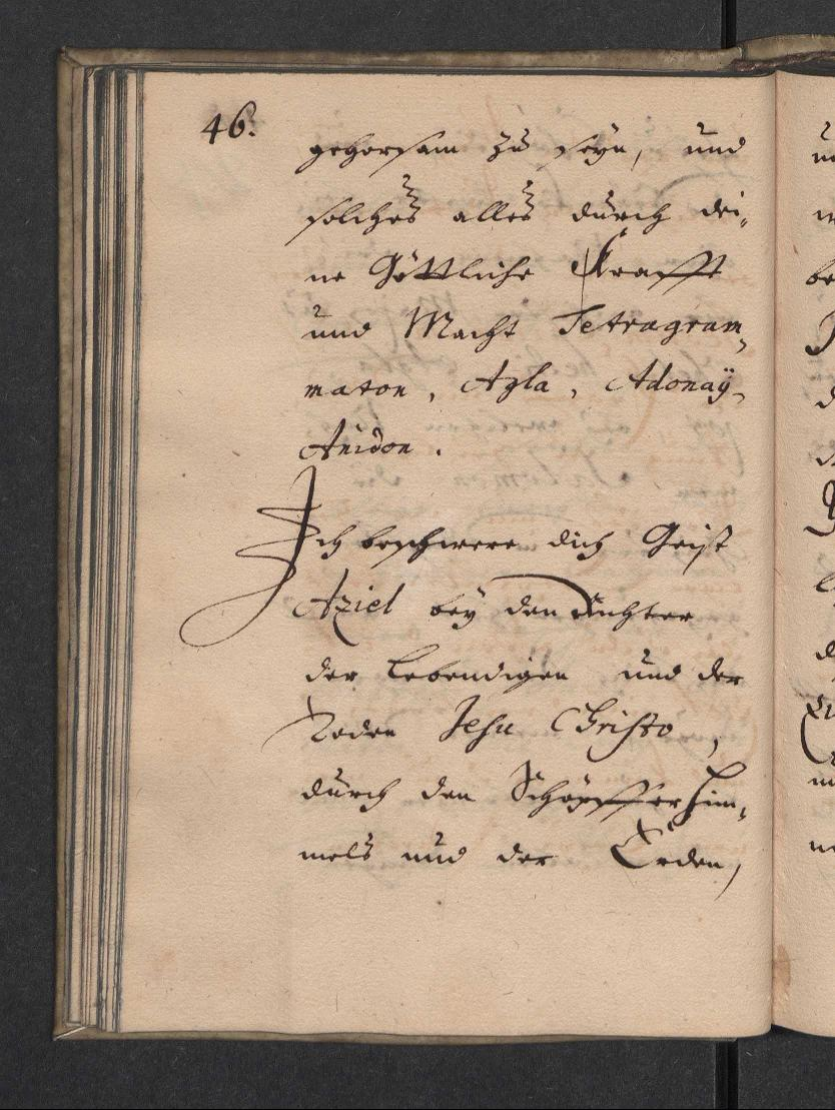 46.
gehorsam zu seyn, und
solches alles durch dei,
ne Göttliche Krafft
und Macht Tetragram,
maton, Agla, Adonaÿ,
Amidon.
Ich beschwere dich Geist
Aziel beÿ den Richter
der Lebendigen und der
Toden Jesu Christo,
durch den Schöpffer Him,
mels und der Erden,